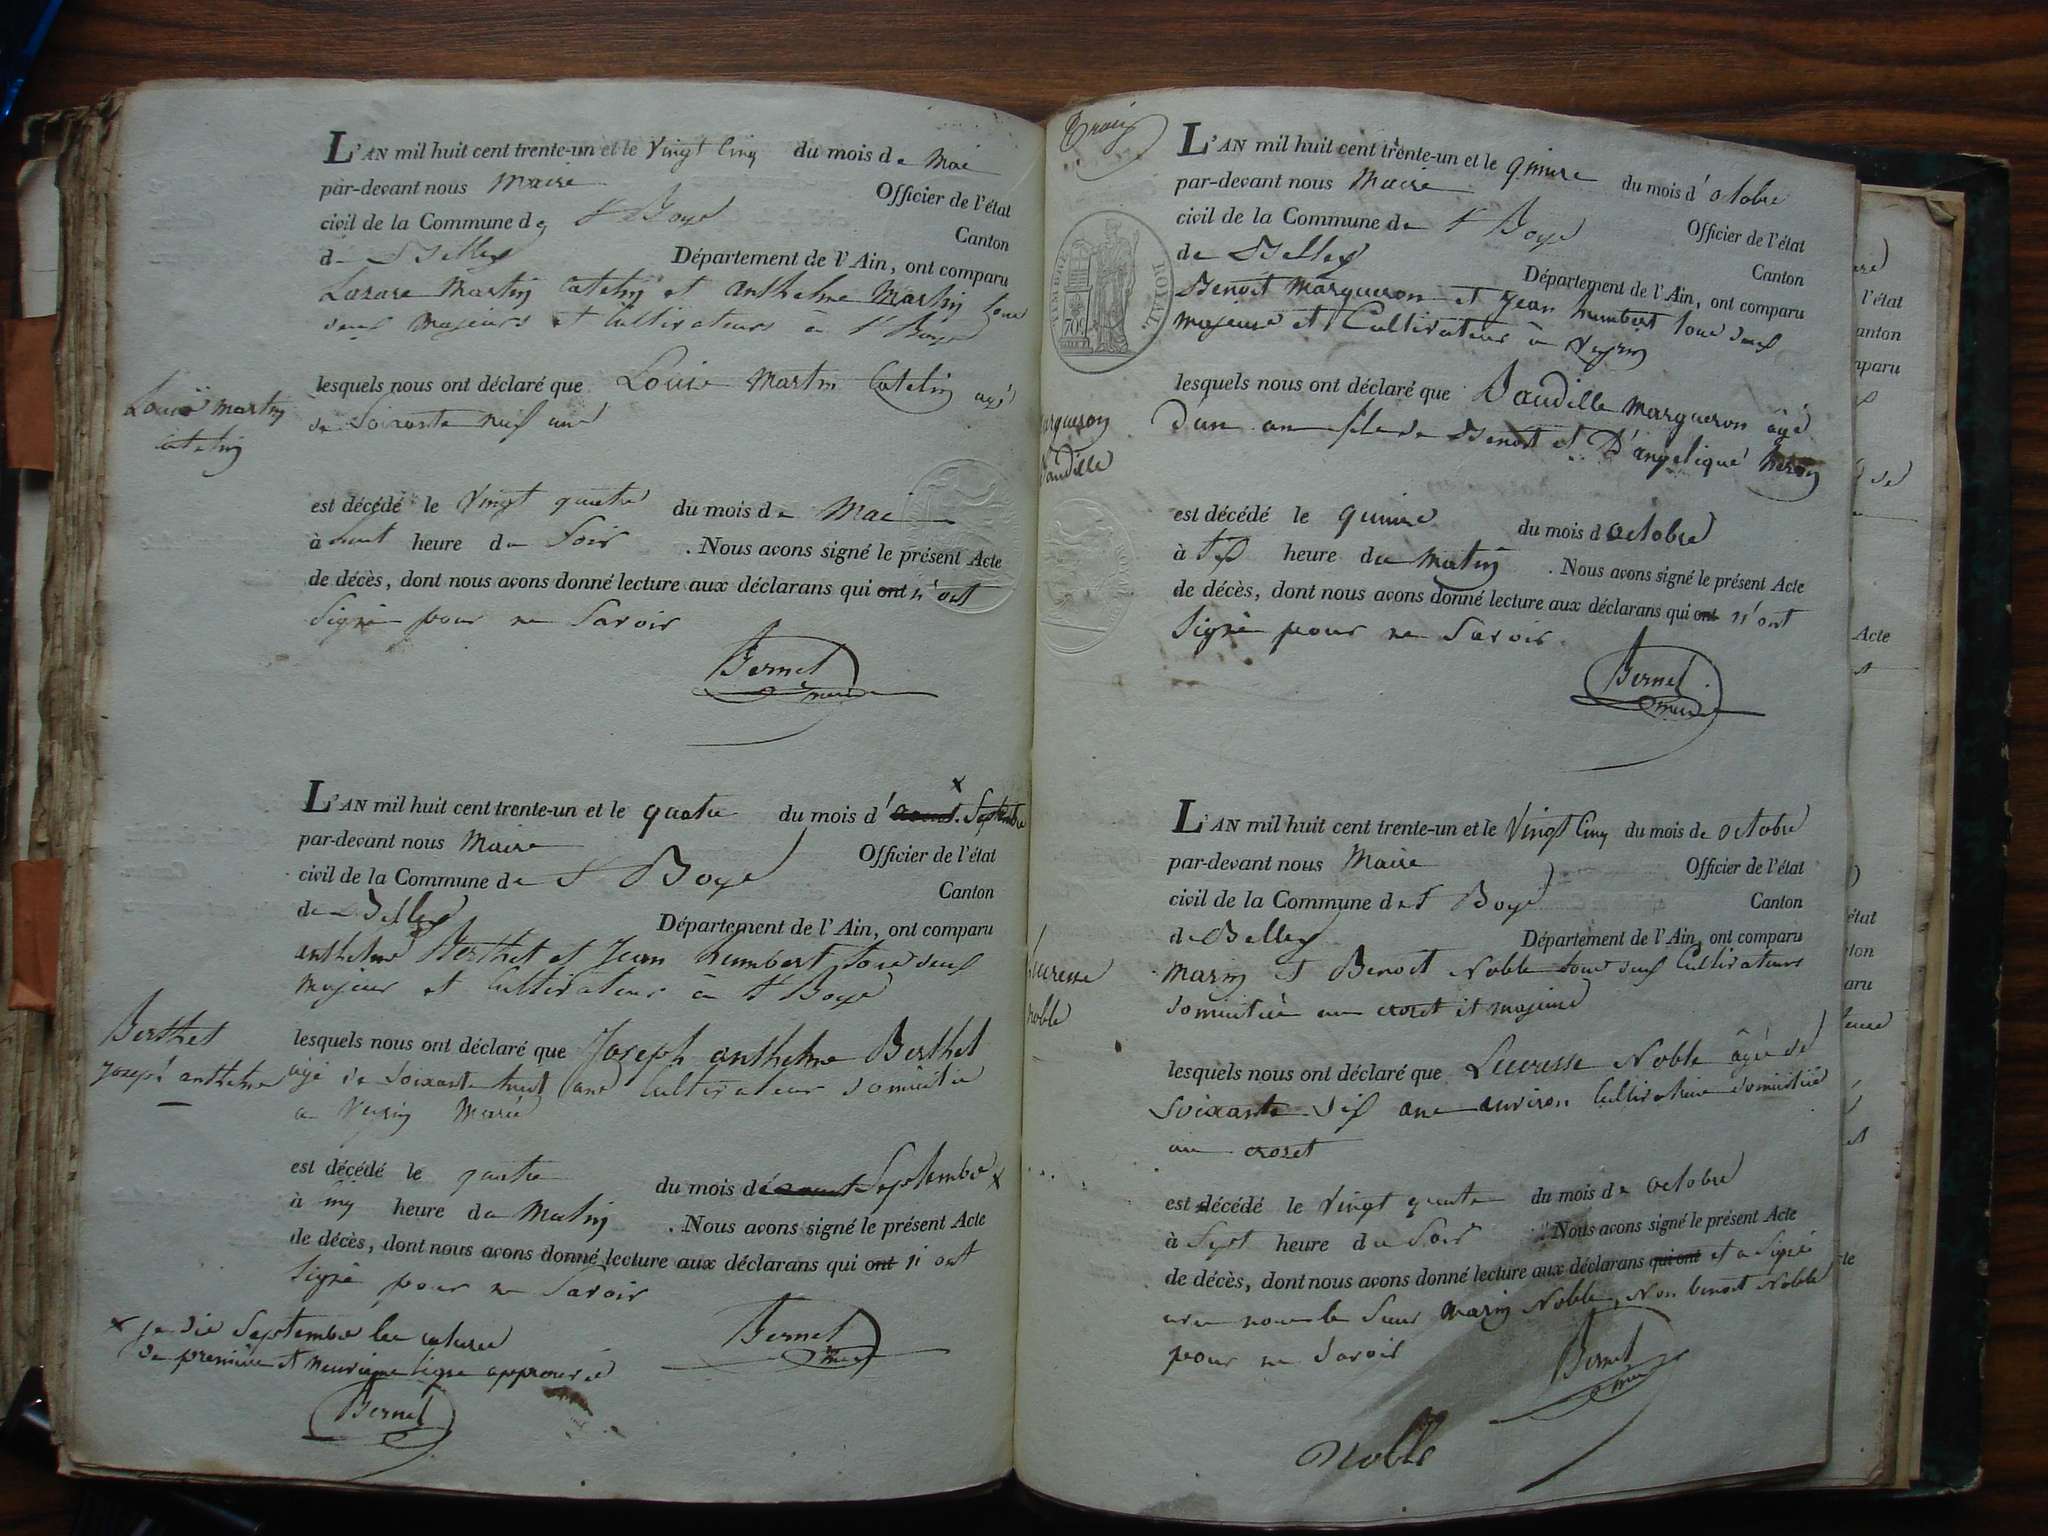 L'AN mil huit cent trente-un et le vingt cinq du mois de mai
par-devant nous Maire Officier de l'état
civil de la Commune de St Boys Canton
de Belley Département de l'Ain, ont comparu
Lazare Martin Catelin et anthelme Martin tous
deux majeurs et Cultivateurs à St Boys
Louis martin
catelin
lesquels nous ont déclaré que Louis Martin Catelin agé
de Soixante neuf ans
est décédé le vingt quatre du mois de Mai
à huit heure du Soir . Nous avons signé le présent Acte
de décès, dont nous avons donné lecture aux déclarans qui ont n'ont
Signé pour ne Savoir
Bernel
maire
L'AN mil huit cent trente-un et le quatre du mois d'aout Septembre
par-devant nous Maire Officier de l'état
civil de la Commune de St Boys Canton
de Belley Département de l'Ain, ont comparu
anthelme Berthet et Jean humbert tous deux
majeur et Cultivateur à St Boys
Berthet
joseph anthelme
lesquels nous ont déclaré que Joseph anthelme Berthet
agé de Soixante huit ans Cultivateur domicilié
a Veyrin Marié
est décédé le quatre du mois d'aout Septembre x
à cinq heure du Matin . Nous avons signé le présent Acte
de décès, dont nous avons donné lecture aux déclarans qui ont n'ont
Signé pour ne Savoir
x je dis Septembre les ratures
de première et neuvieme ligne approuvé
Bernel
maire
Bernel
Trois
TIMBRE ROYAL
70c
L'AN mil huit cent trente-un et le quinze du mois d'octobre
par-devant nous Maire Officier de l'état
civil de la Commune de St Boys Canton
de Belley Département de l'Ain, ont comparu
Benoit Margueron et Jean humbert tous deux
majeurs et Cultivateurs à Veyrin
Margueron
Baudille
lesquels nous ont déclaré que Baudille Margueron âgé
d'un an fils de Benoit et D'angelique
est décédé le quinze du mois d'octobre
à Sept heure du matin . Nous avons signé le présent Acte
de décès, dont nous avons donné lecture aux déclarans qui ont n'ont
Signé pour ne Savoir
Bernel
maire
L'AN mil huit cent trente-un et le vingt cinq du mois de octobre
par-devant nous Maire Officier de l'état
civil de la Commune de St Boys Canton
de Belley Département de l'Ain, ont comparu
Marin et Benoit Noble tous deux Cultivateurs
domiciliés au crozet et majeurs
Lucresse
Noble
lesquels nous ont déclaré que Lucresse Noble âgé de
Soixante dix ans environ Cultivatrice domicilié
au crozet
est décédé le vingt quatre du mois de octobre
à Sept heure du Soir . Nous avons signé le présent Acte
de décès, dont nous avons donné lecture aux déclarans qui ont et a Signé
avec nous le Sieur Marin Noble, Non benoit Noble
pour ne Savoir
Bernel
maire
Noble